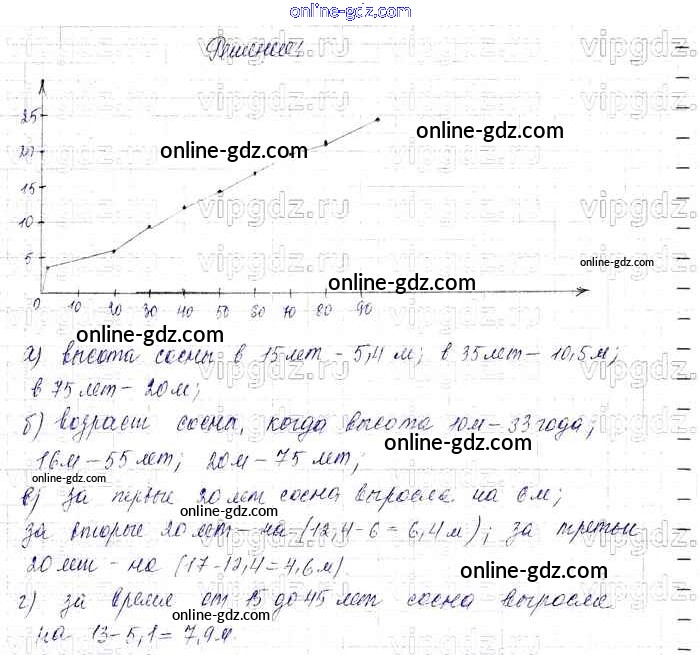 online-gdz.com
Решение:
vipgdz.ru vipgdz.ru vipgdz.ru
25
online-gdz.com
20
online-gdz.com
15
vipgdz.ru vipgdz.ru vipgdz.ru
10
5
online-gdz.com
online-gdz.com
0 10 20 30 40 50 60 70 80 90
online-gdz.com
а) высота сосны в 15 лет - 5,4 м; в 35 лет - 10,5 м;
в 75 лет - 20 м;
б) возраст сосны, когда высота 10 м - 33 года;
online-gdz.com
16 м - 55 лет; 20 м - 75 лет;
online-gdz.com
в) за первые 20 лет сосна выросла на 6 м;
online-gdz.com
за вторые 20 лет - на (12,4 - 6 = 6,4 м); за третьи
20 лет - на (17 - 12,4 = 4,6 м)
online-gdz.com
г) за время от 15 до 45 лет сосна выросла
online-gdz.com
на 13 - 5,1 = 7,9 м.